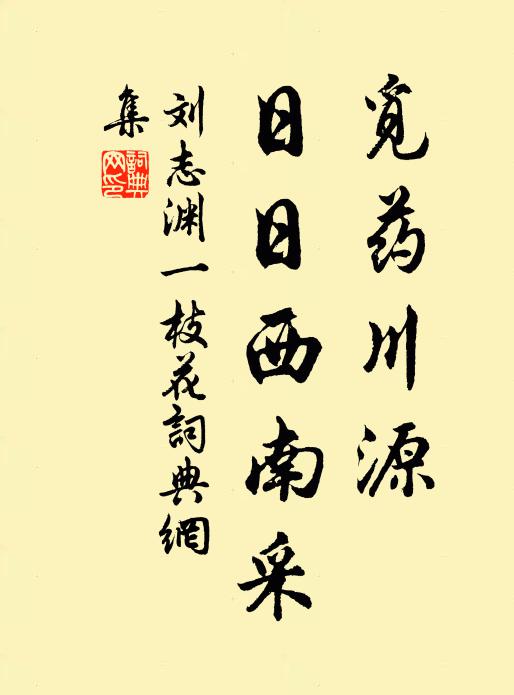 觅药川源
日日西南采
刘志渊一枝花詞典網
集
詞典網印